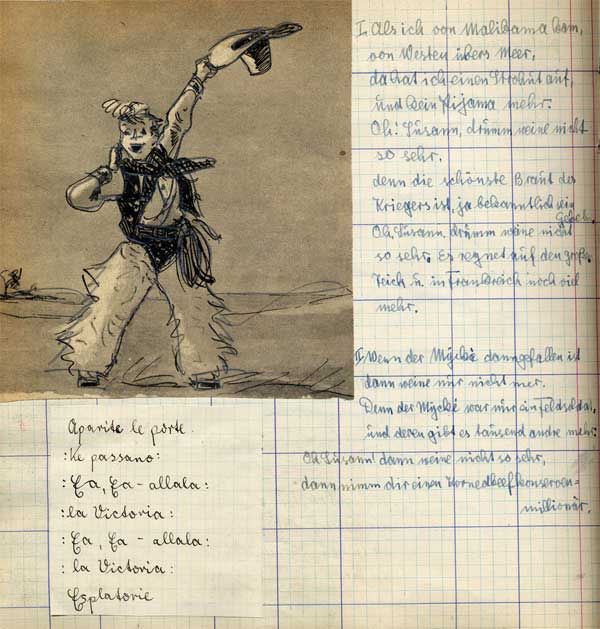 I. Als ich von Malikama kam,
von Westen übers Meer,
da hat ich einen Strohut auf,
und kein Pijama mehr.
Oh! Susann, drumm weine nicht
so sehr.
denn die schönste Braut des
Kriegers ist, ja bekanntlich sein
Gewehr.
Oh, Susann, drumm weine nicht
so sehr. Es regnet auf den großen
Teich u. in Frankreich noch viel
mehr.
II. Wenn der Mycké dann gefallen ist
dann weine nur nicht mer.
Denn der Myckè war nur ein Feldsoldat,
und deren gibt es tausend andre mehr.
Oh Susann! dann weine nicht so sehr,
dann nimm dir einen Kornedbeefkonserven=
millionär.
Aparite le porte.
:Ke passano:
: Ea, Ea - allala:
:la Victoria:
: Ea, Ea - allala:
: la Victoria:
Esplatorie